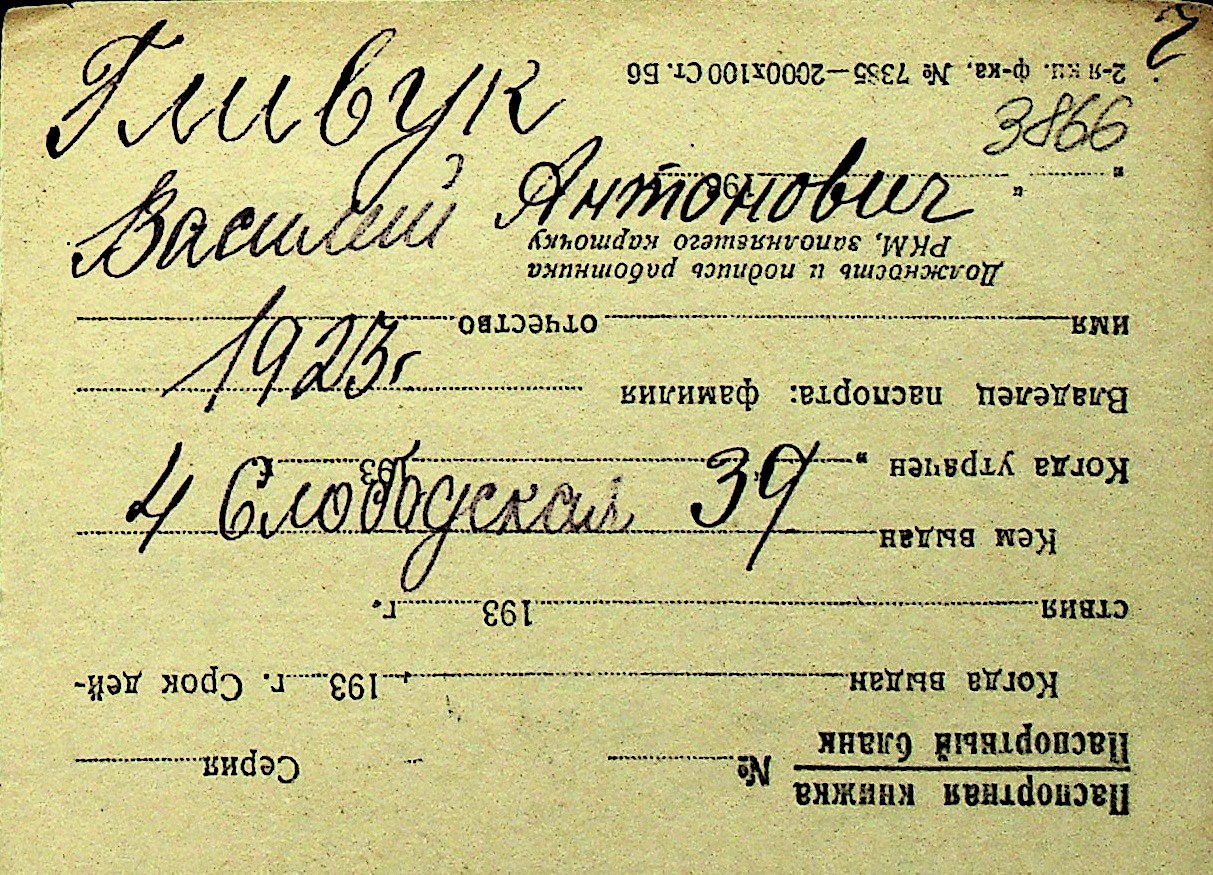 Гливук
Василий Антонович
1923 г
4 Слободская 39
3866
Паспортная книжка
Паспортный бланк
№ Серия
Когда выдан 193 г. Срок дей-
ствия 193 г.
Кем выдан
Когда утрачен „ “ 193 г.
Владелец паспорта: фамилия
имя отчество
Должность и подпись работника
РКМ, заполнявшего карточку
„ “ 193
2-я кн. ф-ка, № 7385—2000х100 Ст. Б6